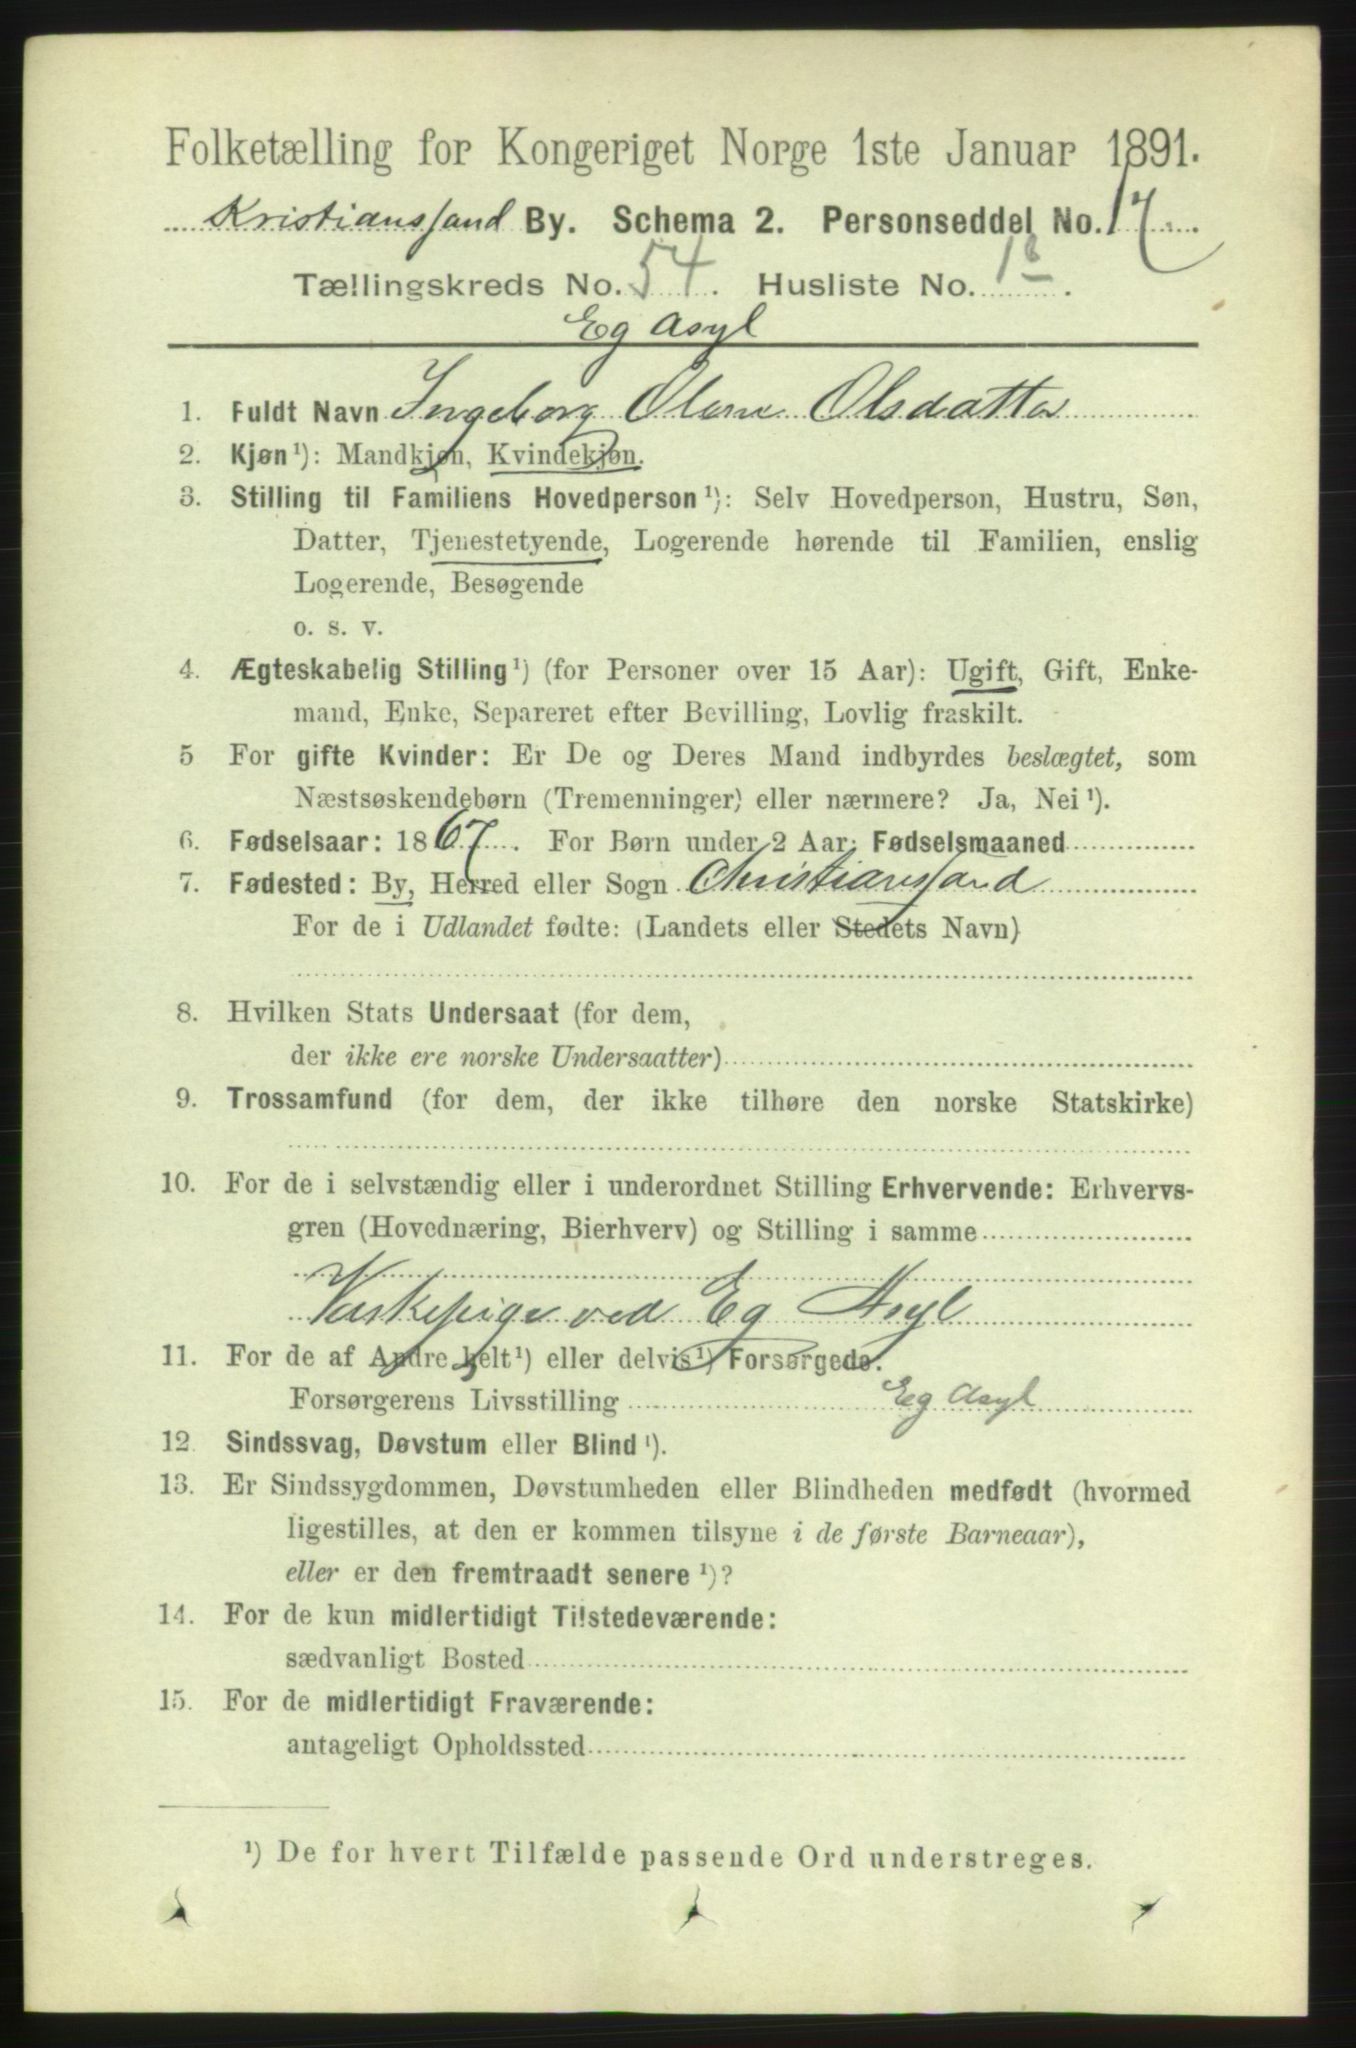 Folketælling for Kongeriget Norge 1ste Januar 1891.
Kristianssand By. Schema 2. Personseddel No. 17.
Tællingskreds No. 54. Husliste No. 1B.
Eg Asyl
1. Fuldt Navn Ingeborg Olene Olsdatter
2. Kjøn¹): Mandkjøn, Kvindekjøn.
3. Stilling til Familiens Hovedperson¹): Selv Hovedperson, Hustru, Søn,
Datter, Tjenestetyende, Logerende hørende til Familien, enslig
Logerende, Besøgende
o. s. v.
4. Ægteskabelig Stilling¹) (for Personer over 15 Aar): Ugift, Gift, Enke-
mand, Enke, Separeret efter Bevilling, Lovlig fraskilt.
5 For gifte Kvinder: Er De og Deres Mand indbyrdes beslægtet, som
Næstsøskendebørn (Tremenninger) eller nærmere? Ja, Nei¹).
6. Fødselsaar: 1867. For Børn under 2 Aar: Fødselsmaaned
7. Fødested: By, Herred eller Sogn Christianssand
For de i Udlandet fødte: (Landets eller Stedets Navn)
8. Hvilken Stats Undersaat (for dem,
der ikke ere norske Undersaatter)
9. Trossamfund (for dem, der ikke tilhøre den norske Statskirke)
10. For de i selvstændig eller i underordnet Stilling Erhvervende: Erhvervs-
gren (Hovednæring, Bierhverv) og Stilling i samme
Vaskepige ved Eg Asyl
11. For de af Andre helt¹) eller delvis¹) Forsørgede.
Forsørgerens Livsstilling Eg Asyl
12 Sindssvag, Døvstum eller Blind¹).
13. Er Sindssygdommen, Døvstumheden eller Blindheden medfødt (hvormed
ligestilles, at den er kommen tilsyne i de første Barneaar),
eller er den fremtraadt senere¹)?
14. For de kun midlertidigt Tilstedeværende:
sædvanligt Bosted
15. For de midlertidigt Fraværende:
antageligt Opholdssted
¹) De for hvert Tilfælde passende Ord understreges.